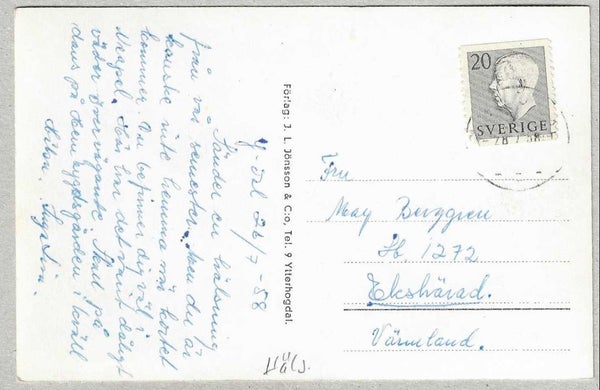 Y-dal 26/7-58
Sänder en hälsning
från vår semester. Men du är
kanske inte hemma när kortet
kommer. Du befinner dig väl i
Neapel. Här har det varit dåligt
väder övervägande. Skall på
dans på hembygdsgården i kväll
Hilsn.
Förlag: J. L. Jönsson & C:o, Tel. 9 Ytterhogdal.
20
SVERIGE
28 7 58
Fru
May Berggren
Fb. 1272
Ekshärad.
Värmland.
Häls.